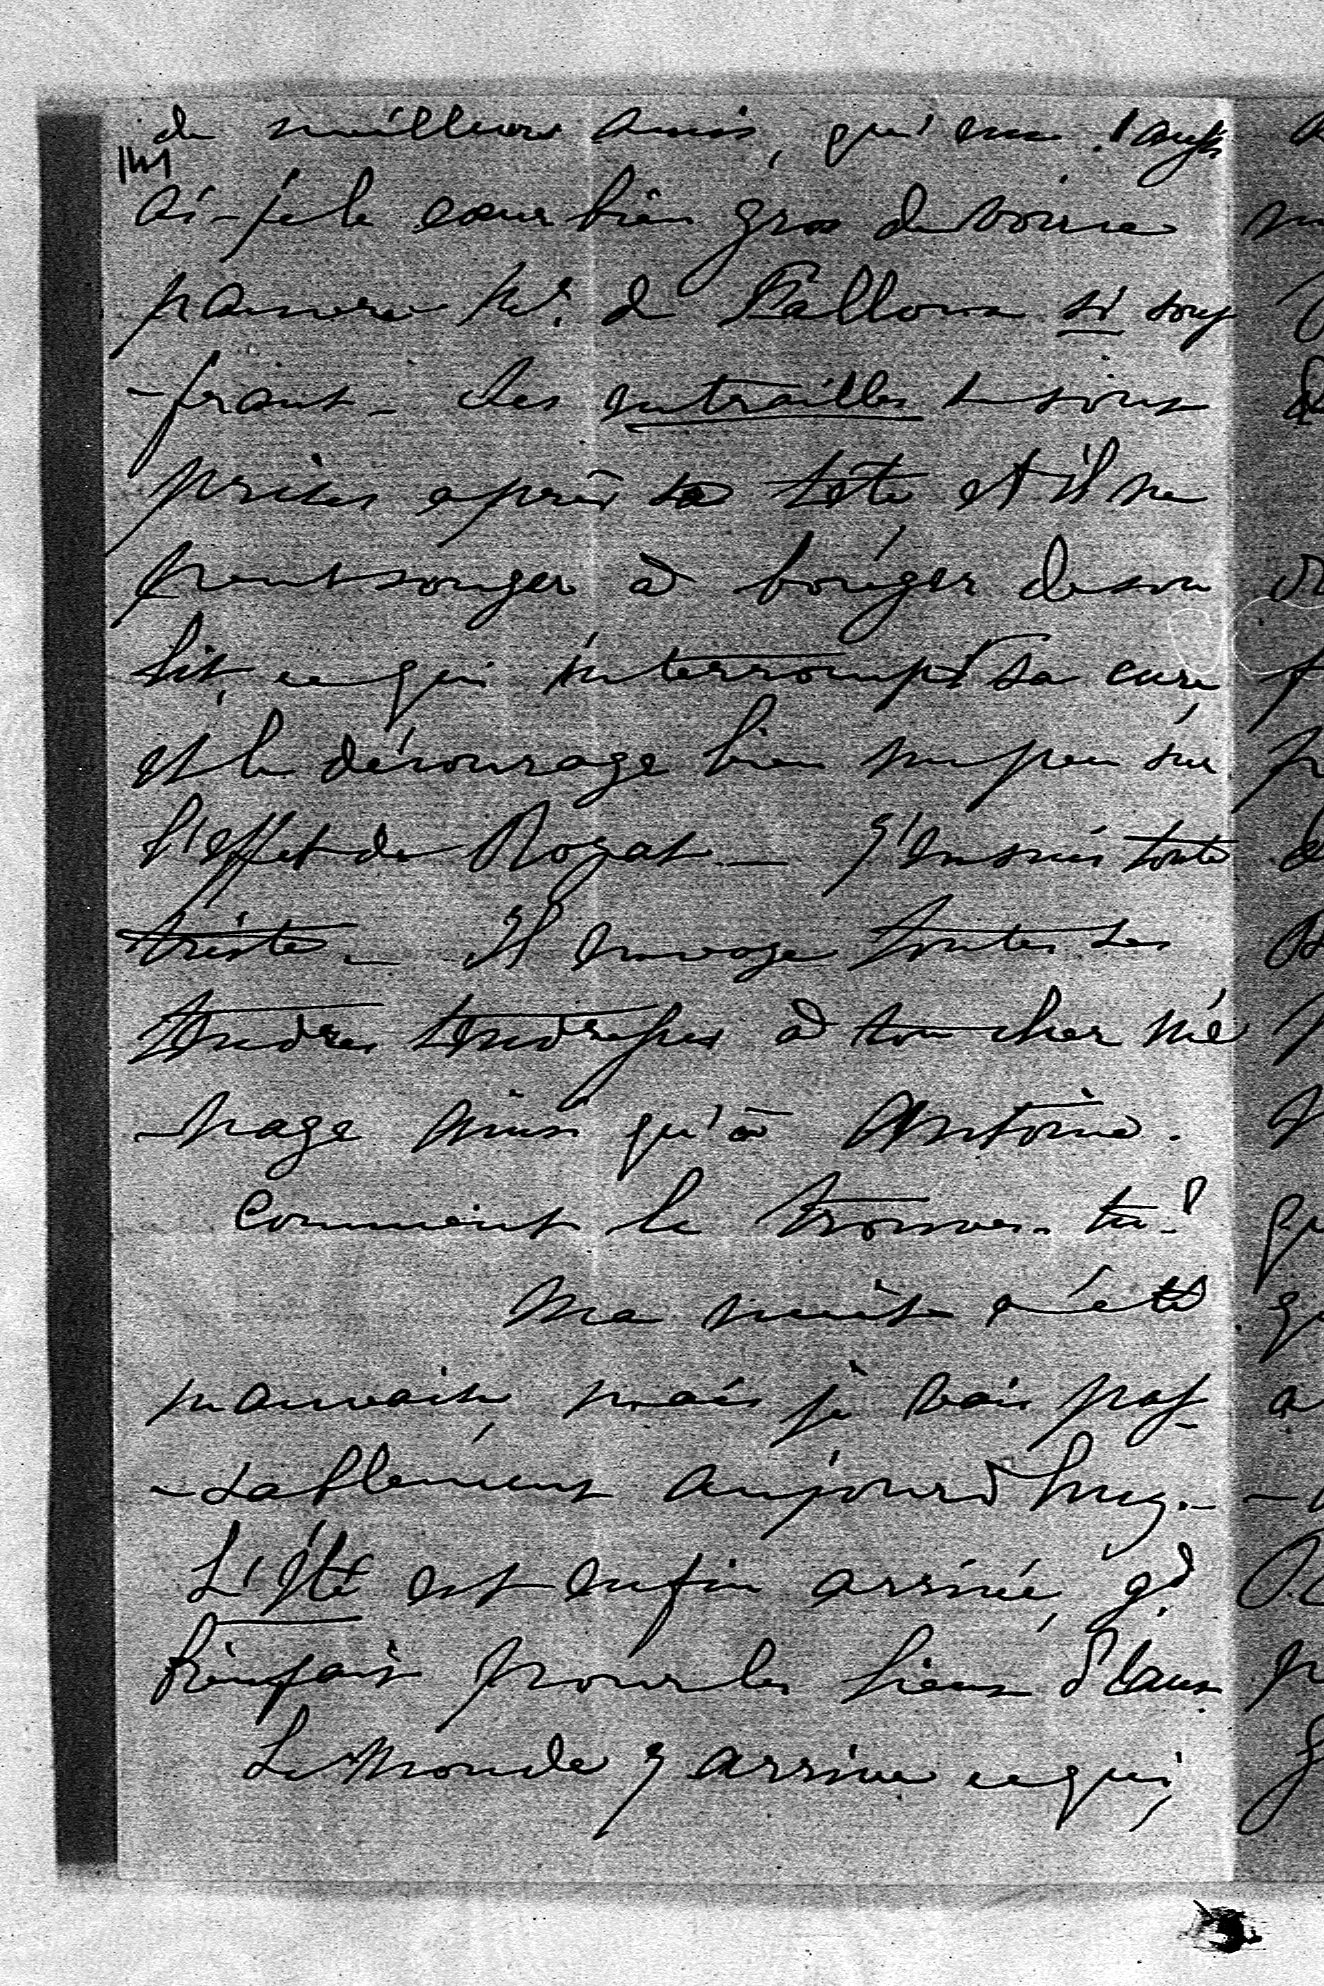 de meilleurs amis, qu'eux ! aussi
ai-je le cœur bien gros de voir ce
pauvre Mr. de Falloux si souf
-frant - Les entrailles se sont
prises après la tête et il ne
peut songer à bouger de son
lit, ce qui interrompt sa cure
et le décourage bien un peu sur
l'effet de Royat - J'en suis toute
triste - Il envoye toutes ses
tendres tendresses à ton cher mé
-nage ainsi qu'à Antoine.
Comment le trouves-tu ?
Ma nuit a été
mauvaise, mais je vais pas
-sablement aujourd'huy. -
L'Été est enfin arrivé, gd
bienfait pour les lieux d'eaux
Le Monde y arrive ce qui,